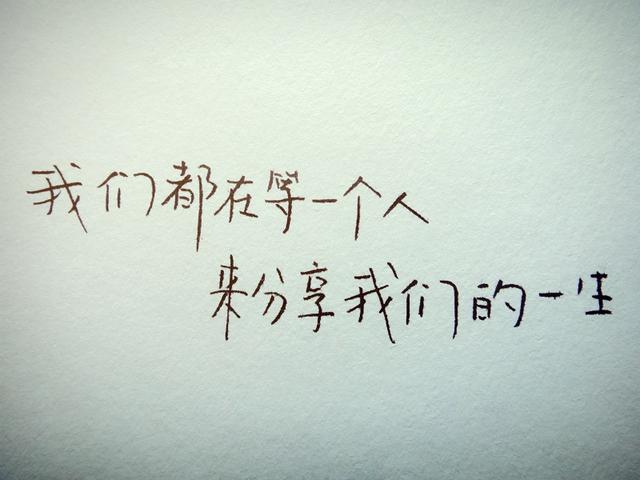 我们都在等一个人
来分享我们的一生